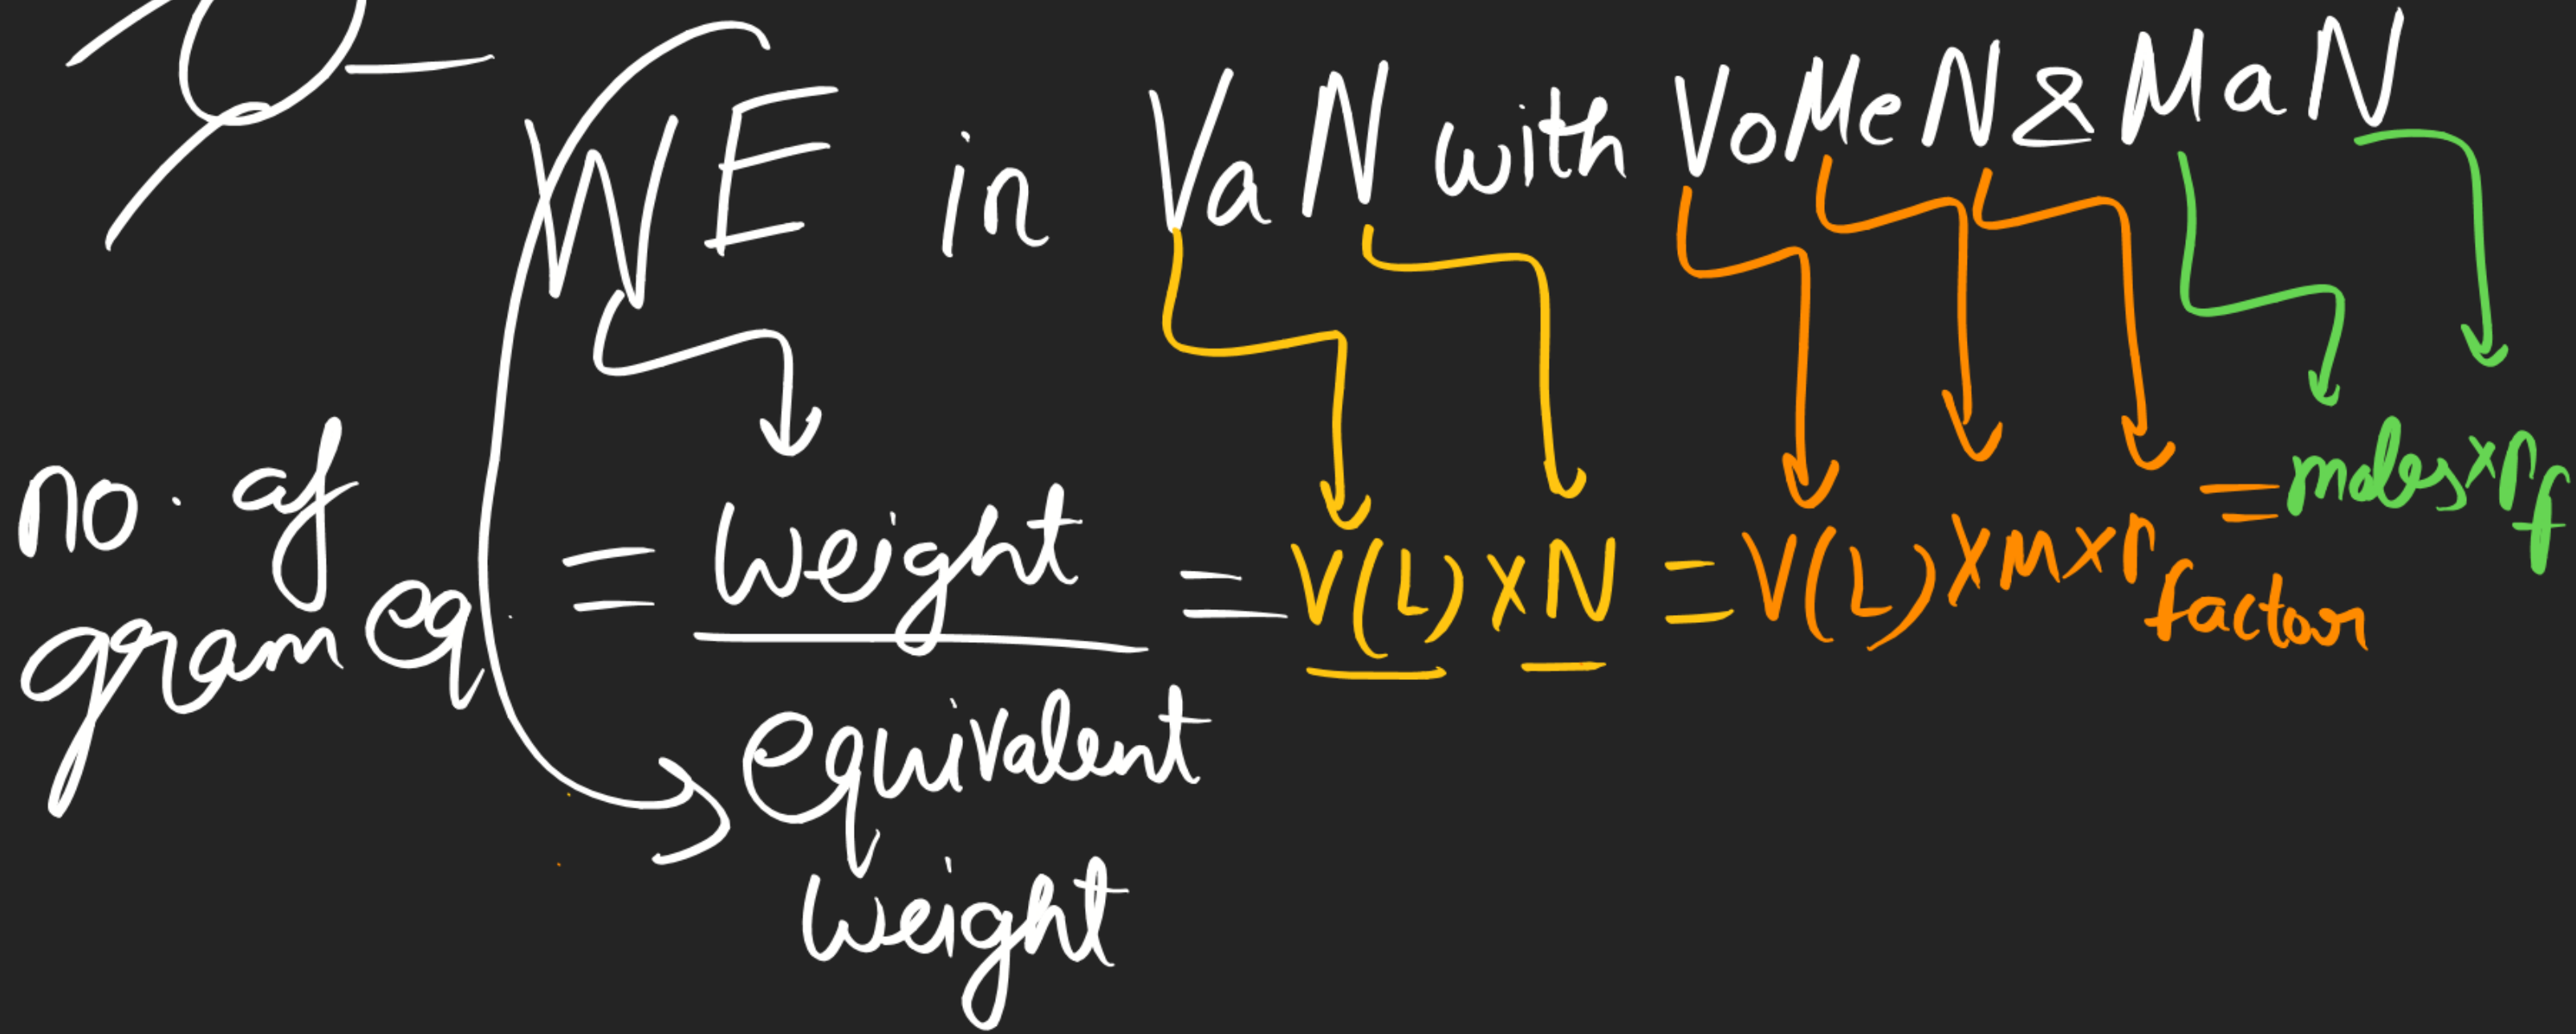 WE in VaN with VoMeN & MaN
no. of gram eq = weight / equivalent weight = V(L) × N = V(L) × M × n factor = moles × nf